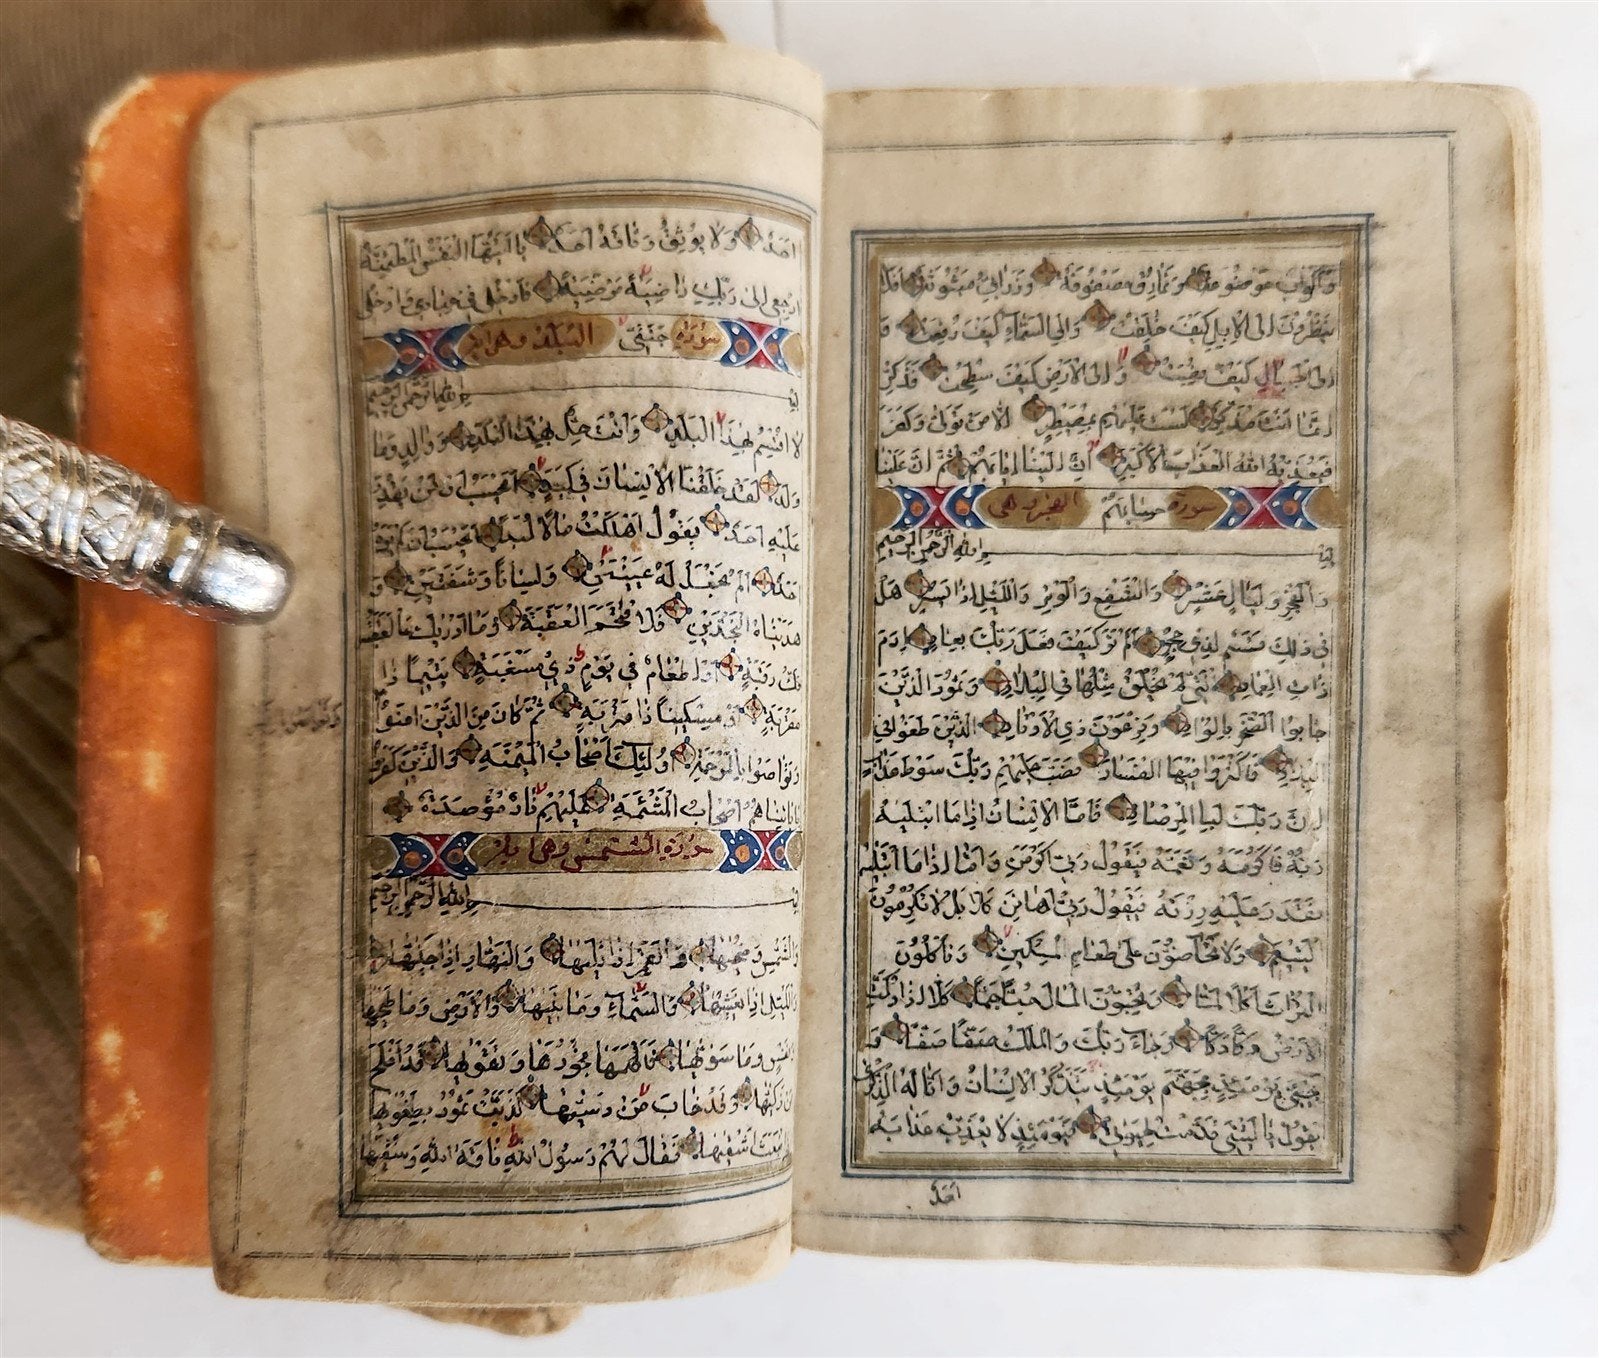 وَاَكْوَابٌ مَوْضُوعَةٌ وَنَمَارِقُ مَصْفُوفَةٌ وَزَرَابِيُّ مَبْثُوثَةٌ اَفَلَا
يَنْظُرُونَ اِلَى الْاِبِلِ كَيْفَ خُلِقَتْ وَاِلَى السَّمَاءِ كَيْفَ رُفِعَتْ وَ
اِلَى الْجِبَالِ كَيْفَ نُصِبَتْ وَاِلَى الْاَرْضِ كَيْفَ سُطِحَتْ فَذَكِّرْ
اِنَّمَا اَنْتَ مُذَكِّرٌ لَسْتَ عَلَيْهِمْ بِمُصَيْطِرٍ اِلَّا مَنْ تَوَلّٰى وَكَفَرَ
فَيُعَذِّبُهُ اللّٰهُ الْعَذَابَ الْاَكْبَرَ اِنَّ اِلَيْنَا اِيَابَهُمْ ثُمَّ اِنَّ عَلَيْنَا
سورة حِسَابَهُمْ الفجر وهى
بسم الله الرحمن الرحيم
وَالْفَجْرِ وَلَيَالٍ عَشْرٍ وَالشَّفْعِ وَالْوَتْرِ وَاللَّيْلِ اِذَا يَسْرِ هَلْ
فِي ذٰلِكَ قَسَمٌ لِذِي حِجْرٍ اَلَمْ تَرَ كَيْفَ فَعَلَ رَبُّكَ بِعَادٍ اِرَمَ
ذَاتِ الْعِمَادِ الَّتِي لَمْ يُخْلَقْ مِثْلُهَا فِي الْبِلَادِ وَثَمُودَ الَّذِينَ
جَابُوا الصَّخْرَ بِالْوَادِ وَفِرْعَوْنَ ذِي الْاَوْتَادِ الَّذِينَ طَغَوْا فِي
الْبِلَادِ فَاَكْثَرُوا فِيهَا الْفَسَادَ فَصَبَّ عَلَيْهِمْ رَبُّكَ سَوْطَ عَذَابٍ
اِنَّ رَبَّكَ لَبِالْمِرْصَادِ فَاَمَّا الْاِنْسَانُ اِذَا مَا ابْتَلٰيهُ
رَبُّهُ فَاَكْرَمَهُ وَنَعَّمَهُ فَيَقُولُ رَبِّي اَكْرَمَنِ وَاَمَّا اِذَا مَا ابْتَلٰيهُ
فَقَدَرَ عَلَيْهِ رِزْقَهُ فَيَقُولُ رَبِّي اَهَانَنِ كَلَّا بَلْ لَا تُكْرِمُونَ
الْيَتِيمَ وَلَا تَحَاضُّونَ عَلٰى طَعَامِ الْمِسْكِينِ وَتَأْكُلُونَ
التُّرَاثَ اَكْلًا لَمًّا وَتُحِبُّونَ الْمَالَ حُبًّا جَمًّا كَلَّا اِذَا دُكَّتِ
الْاَرْضُ دَكًّا دَكًّا وَجَاءَ رَبُّكَ وَالْمَلَكُ صَفًّا صَفًّا وَ
جِيءَ يَوْمَئِذٍ بِجَهَنَّمَ يَوْمَئِذٍ يَتَذَكَّرُ الْاِنْسَانُ وَاَنّٰى لَهُ الذِّكْرٰى
يَقُولُ يَا لَيْتَنِي قَدَّمْتُ لِحَيٰوتِي فَيَوْمَئِذٍ لَا يُعَذِّبُ عَذَابَهُ
اَحَدٌ
اَحَدٌ وَلَا يُوثِقُ وَثَاقَهُ اَحَدٌ يَا اَيَّتُهَا النَّفْسُ الْمُطْمَئِنَّةُ
ارْجِعِي اِلٰى رَبِّكِ رَاضِيَةً مَرْضِيَّةً فَادْخُلِي فِي عِبَادِي وَادْخُلِي
سورة جَنَّتِي البلد وهى
بسم الله الرحمن الرحيم
لَا اُقْسِمُ بِهٰذَا الْبَلَدِ وَاَنْتَ حِلٌّ بِهٰذَا الْبَلَدِ وَوَالِدٍ وَمَا
وَلَدَ لَقَدْ خَلَقْنَا الْاِنْسَانَ فِي كَبَدٍ اَيَحْسَبُ اَنْ لَنْ يَقْدِرَ
عَلَيْهِ اَحَدٌ يَقُولُ اَهْلَكْتُ مَالًا لُبَدًا اَيَحْسَبُ اَنْ لَمْ يَرَهُ
اَحَدٌ اَلَمْ نَجْعَلْ لَهُ عَيْنَيْنِ وَلِسَانًا وَشَفَتَيْنِ وَ
هَدَيْنَاهُ النَّجْدَيْنِ فَلَا اقْتَحَمَ الْعَقَبَةَ وَمَا اَدْرٰيكَ مَا الْعَقَبَةُ
فَكُّ رَقَبَةٍ اَوْ اِطْعَامٌ فِي يَوْمٍ ذِي مَسْغَبَةٍ يَتِيمًا ذَا
مَقْرَبَةٍ اَوْ مِسْكِينًا ذَا مَتْرَبَةٍ ثُمَّ كَانَ مِنَ الَّذِينَ اٰمَنُوا
وَتَوَاصَوْا بِالْمَرْحَمَةِ اُولٰئِكَ اَصْحَابُ الْمَيْمَنَةِ وَالَّذِينَ كَفَرُوا
بِاٰيَاتِنَا هُمْ اَصْحَابُ الْمَشْئَمَةِ عَلَيْهِمْ نَارٌ مُؤْصَدَةٌ
سورة الشمس وهى
بسم الله الرحمن الرحيم
وَالشَّمْسِ وَضُحٰيهَا وَالْقَمَرِ اِذَا تَلٰيهَا وَالنَّهَارِ اِذَا جَلّٰيهَا
وَاللَّيْلِ اِذَا يَغْشٰيهَا وَالسَّمَاءِ وَمَا بَنٰيهَا وَالْاَرْضِ وَمَا طَحٰيهَا
وَنَفْسٍ وَمَا سَوّٰيهَا فَاَلْهَمَهَا فُجُورَهَا وَتَقْوٰيهَا قَدْ اَفْلَحَ
مَنْ زَكّٰيهَا وَقَدْ خَابَ مَنْ دَسّٰيهَا كَذَّبَتْ ثَمُودُ بِطَغْوٰيهَا
اِذِ انْبَعَثَ اَشْقٰيهَا فَقَالَ لَهُمْ رَسُولُ اللّٰهِ نَاقَةَ اللّٰهِ وَسُقْيٰهَا